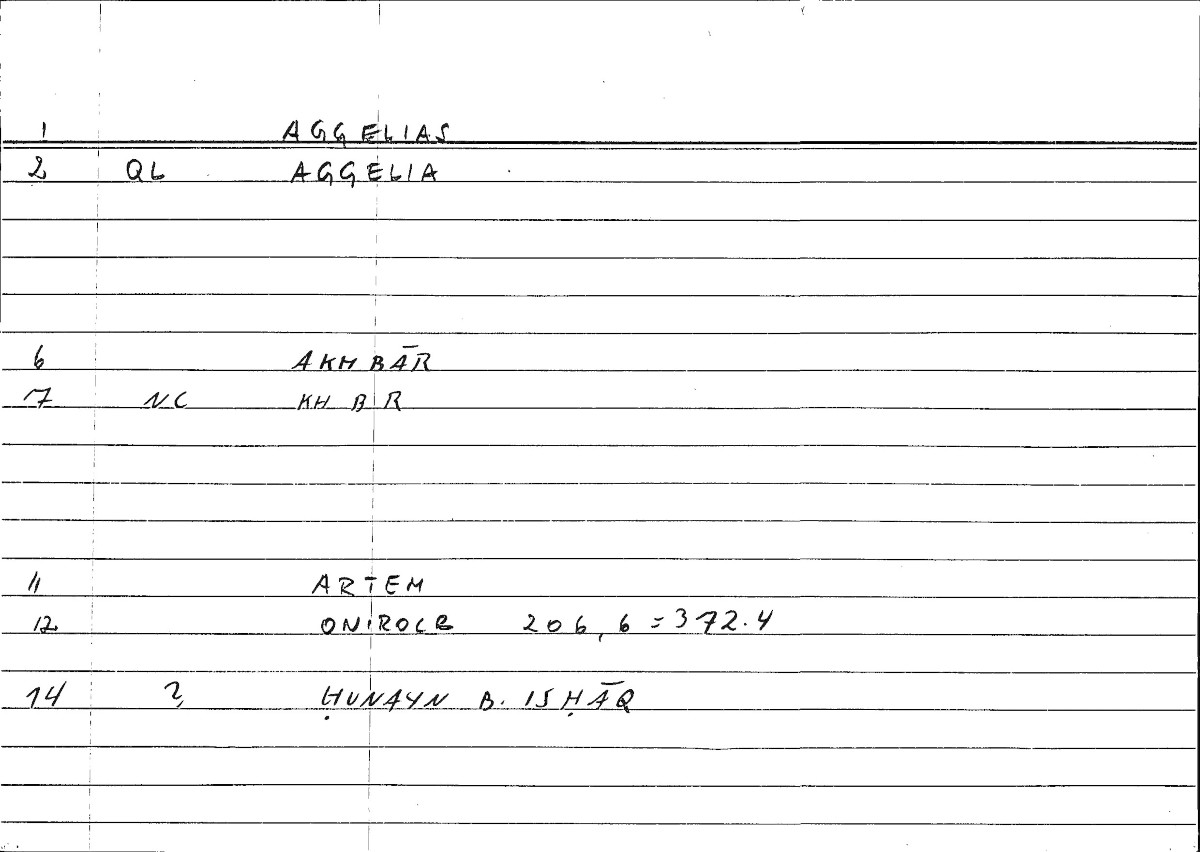 1 AGGELIAS
2 QL AGGELIA
6 AKHBĀR
7 NC KH B R
11 ARTEM
12 ONIROCR 206,6=372.4
14 ?, ḤUNAYN B. ISḤĀQ